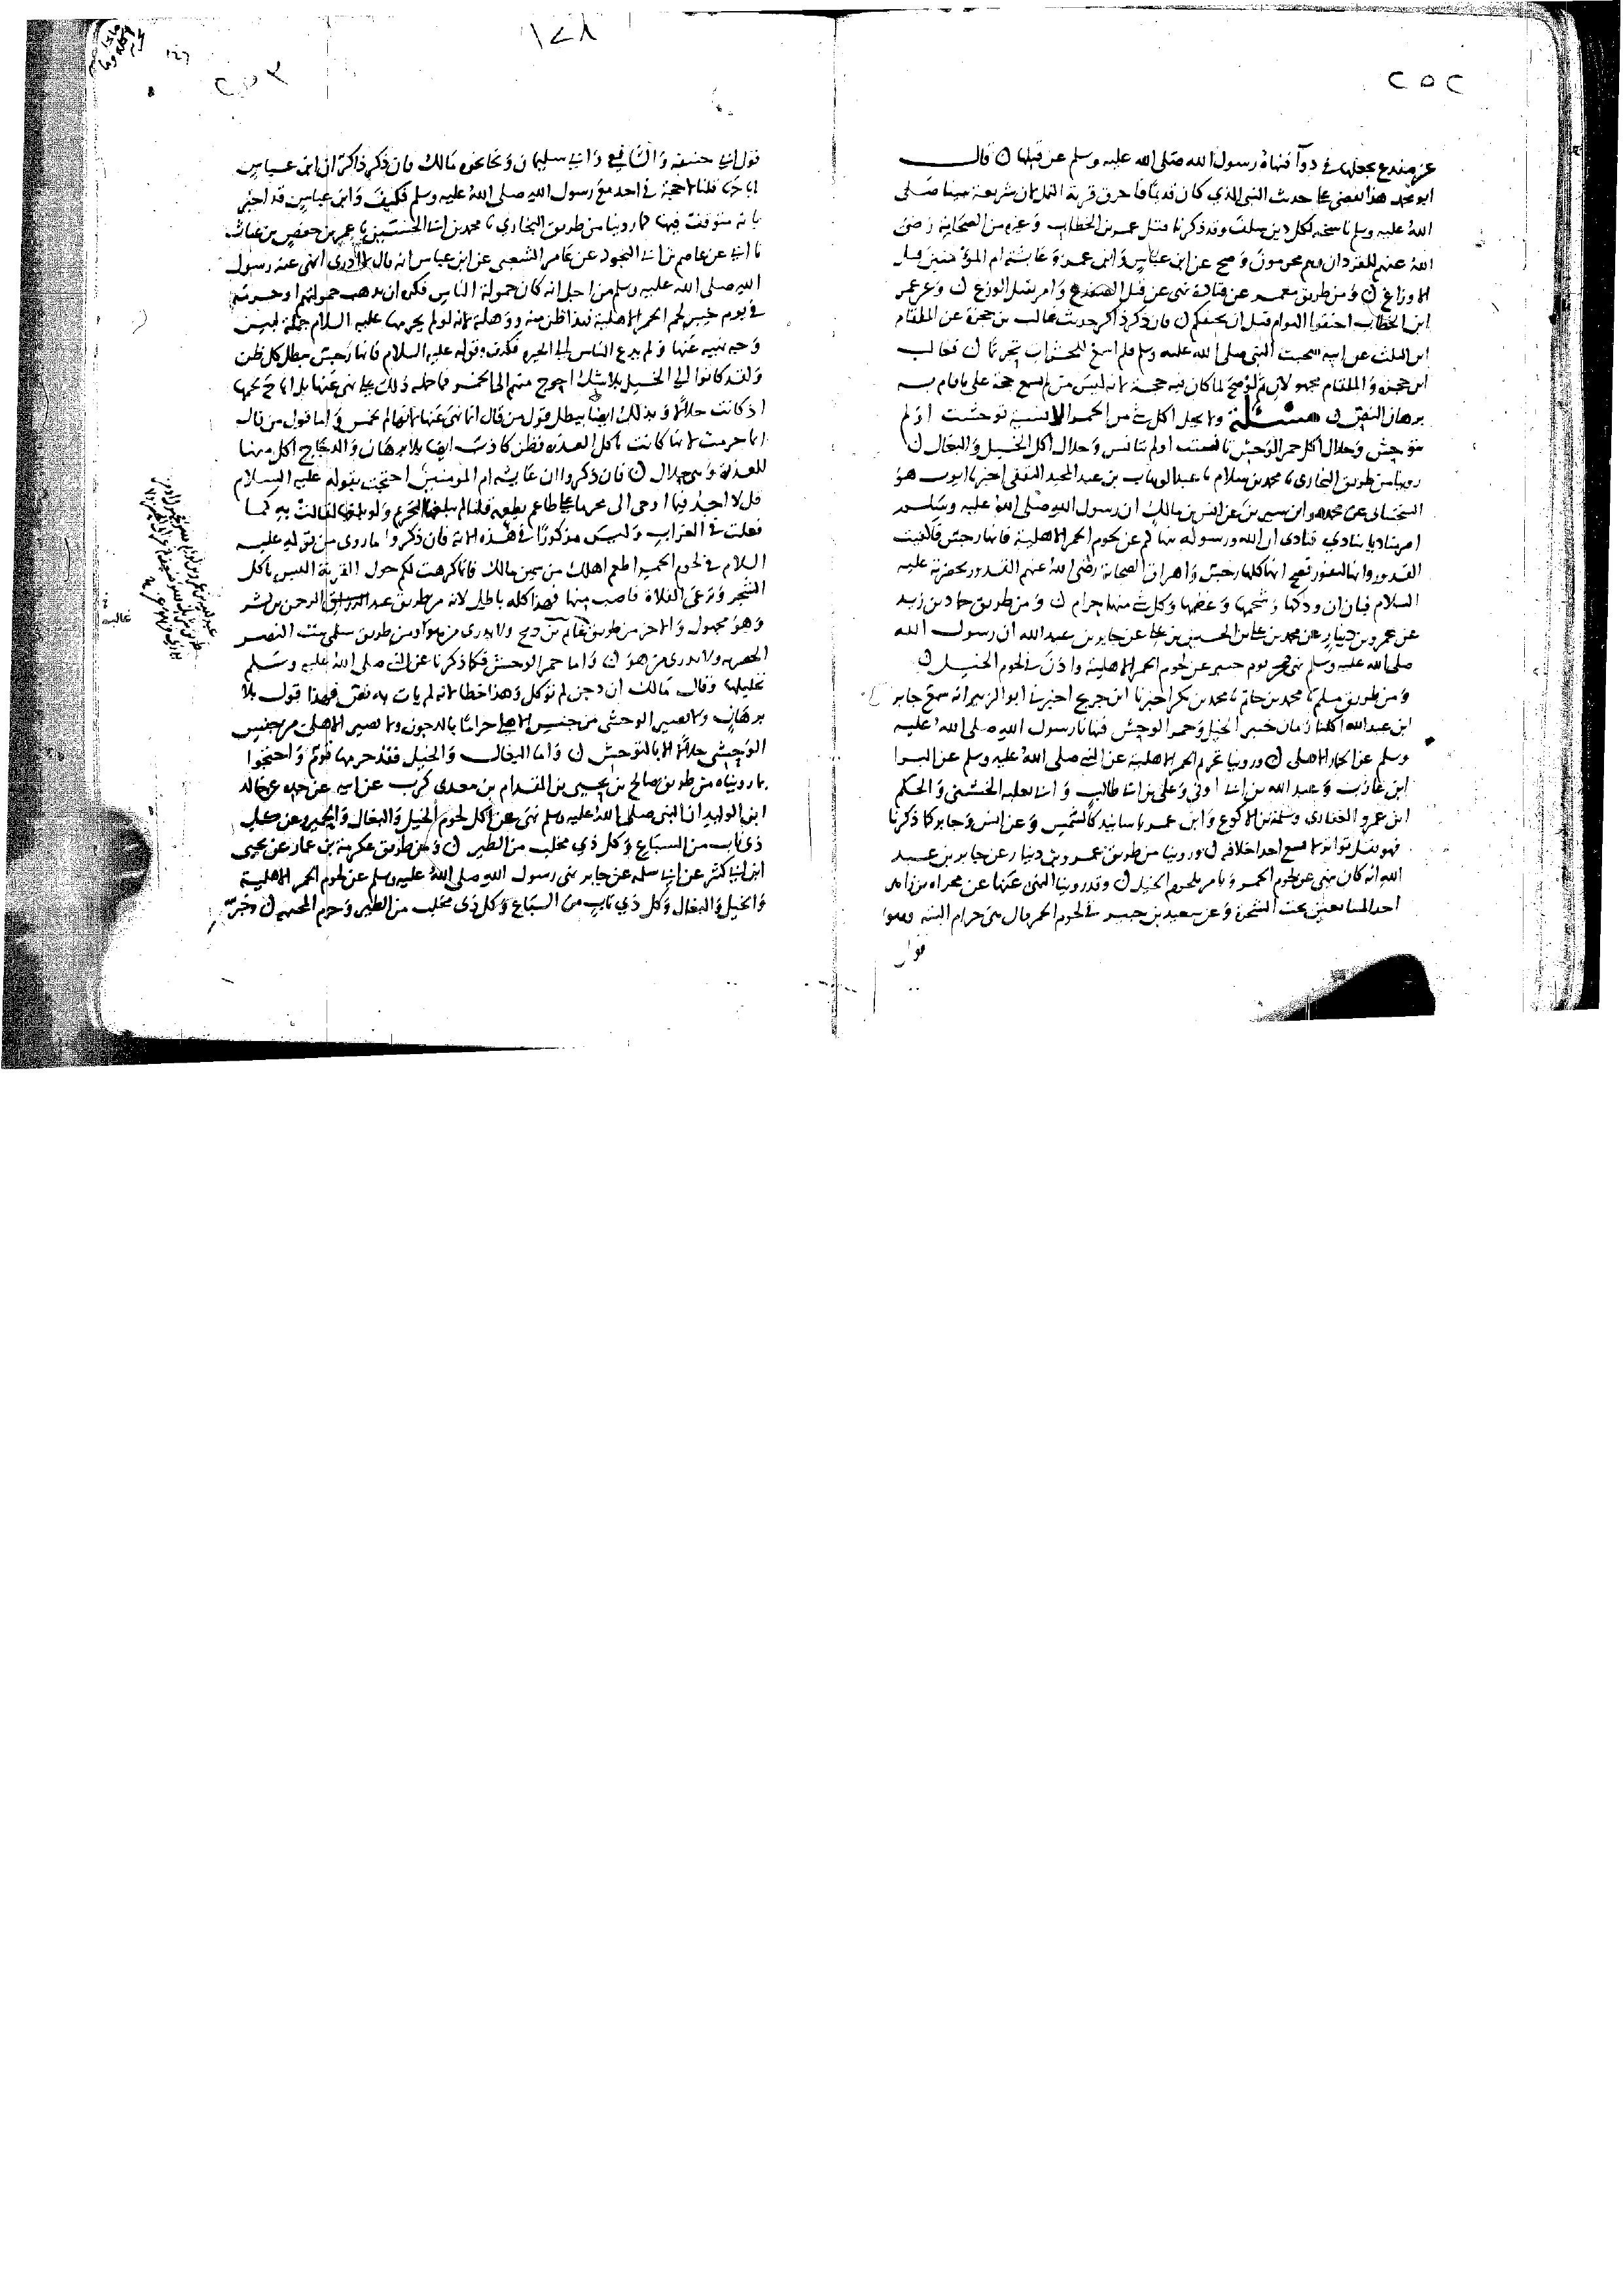 ٢٥٢
عن ضفدع يجعلها في دوآ فنهاه رسول الله صلى الله عليه وسلم عن قتلها ن قال
ابو محمد هذا يقضي على حديث النبي الذي كان قديما فاحرق قرية النمل لان شريعة نبينا صلى
الله عليه وسلم ناسخه لكل دين سلف وقد ذكرنا قتل عمر بن الخطاب وغيره من الصحابة رضي
الله عنهم للقردان وهم محرمون وصح عن ابن عباس وابن عمر وعايشة ام المؤمنين قتل
الاوزاغ ن ومن طريق معمر عن قتادة نهى عن قتل الضفدع وامر بقتل الوزغ ن وعن عمر
ابن الخطاب اخيفوا الهوام قبل ان تخيفكم ن فان ذكر ذاكر حديث غالب بن حجرة عن الملقام
ابن التلب عن ابيه صحبت النبي صلى الله عليه وسلم فلم اسمع للحشرات تحريما ن فغالب
ابن حجره والملقام مجهولان ثم لو صح لما كان فيه حجة لانه ليس من لم يسمع حجة على ما قام به
برهان النص ن مسئلة ولا يحل اكل شي من الحمر الانسية توحشت او لم
تتوحش وحلال اكل حمر الوحش تانست او لم تتانس وحلال اكل الخيل والبغال ن
روينا من طريق البخاري نا محمد بن سلام نا عبد الوهاب بن عبد المجيد الثقفي اخبرنا ايوب هو
السختياني عن محمد هو ابن سيرين عن انس بن مالك ان رسول الله صلى الله عليه وسلم
امر مناديا ينادي فنادى ان الله ورسوله ينهاكم عن لحوم الحمر الاهلية فانها رجس فاكفيت
القدور وانها لتفور فصح انها كلها رجس واهراق الصحابة رضي الله عنهم القدور بحضرته عليه
السلام بيان ان ودكها وشحمها وعظمها وكل شي منها حرام ن ومن طريق حماد بن زيد
عن عمرو بن دينار عن محمد بن علي بن الحسين بن علي عن جابر بن عبد الله ان رسول الله
صلى الله عليه وسلم نهى يوم خيبر عن لحوم الحمر الاهلية واذن في لحوم الخيل ن
ومن طريق مسلم نا محمد بن حاتم نا محمد بن بكر اخبرنا ابن جريج اخبرني ابو الزبير انه سمع جابر
ابن عبد الله اكلنا زمان خيبر الخيل وحمر الوحش فنهانا رسول الله صلى الله عليه
وسلم عن الحمار الاهلي ن وروينا تحريم الحمر الاهلية عن النبي صلى الله عليه وسلم عن البرا
ابن عازب وعبد الله بن ابي اوفى وعلي بن ابي طالب وابي ثعلبة الخشني والحكم
ابن عمرو الغفاري وسلمة بن الاكوع وابن عمر باسانيد كالشمس وعن انس وجابر كما ذكرنا
فهو نقل تواتر لا يسع احدا خلافه ن وروينا من طريق عمرو بن دينار عن جابر بن عبد
الله انه كان ينهى عن لحوم الحمر ويامر بلحوم الخيل ن وقد روينا النهي عنها عن مجزاه بن زاهر
احد المبايعين تحت الشجرة وعن سعيد بن جبير في لحوم الحمر قال هي حرام البتة وهو
قول
١٢٨
٢٥٣
قول ابي حنيفه والشافعي وابي سليمان ونحا نحوه مالك فان ذكر ذاكر ان ابن عباس
اباحها قلنا لا حجة في احد مع رسول الله صلى الله عليه وسلم فكيف وابن عباس قد اخبر
بانه متوقف فيها كما روينا من طريق البخاري نا محمد بن ابي الحسين نا عمر بن حفص بن غياث
نا ابي عن عاصم بن ابي النجود عن عامر الشعبي عن ابن عباس انه قال لا ادري انهى عنه رسول
الله صلى الله عليه وسلم من اجل انه كان حمولة الناس فكره ان تذهب حمولتهم او حرمه
في يوم خيبر لحم الحمر الاهلية فهذا ظن منه ووهلة لانه لو لم يحرمها عليه السلام جملة لبين
وجه نهيه عنها ولم يدع الناس الى الحيرة فكيف وقوله عليه السلام فانها رجس مبطل كل ظن
ولقد كانوا الى الخيل بلا شك احوج منهم الى الحمر فما حمله ذلك على نهي عنها بل اباح لحمها
اذ كانت حلالا وبذلك ايضا يبطل قول من قال انما نهى عنها لانها لم تخمس واما قول من قال
انما حرمت لانها كانت تاكل العذرة فظن كاذب ايضا بلا برهان والدجاج اكل منها
للعذرة وهي حلال ن فان ذكروا ان عايشه ام المومنين احتجت بقوله عليه السلام
قل لا اجد فيما اوحى الي محرما على طاعم يطعمه قلنا لم يبلغها التحريم ولو بلغها لقالت به كما
فعلت في الغراب وليس مذكورا في هذه الاية فان ذكروا ما روي من قوله عليه
السلام في لحوم الحمير اطعم اهلك من سمين مالك فانما كرهت لكم حول القرية اليس تاكل
الشجر وترعى الفلاة فاصب منها فهذا كله باطل لانه من طريق عبد الرحمن بن بشر
وهو مجهول والاخر من طريق
الخضريه ولا يدرى من هو ن واما حمر الوحش فكما ذكرنا عن النبي صلى الله عليه وسلم
تحليلها وقال مالك ان دجن لم يوكل وهذا خطا لانه لم يات به نص فهذا قول بلا
برهان ولا يصير الوحشي من جنس الاهلي حراما بالدجون ولا يصير الاهلي من جنس
الوحشي حلالا بالتوحش ن واما البغال والخيل فقد حرمها قوم واحتجوا
بما رويناه من طريق صالح بن يحيى بن المقدام بن معدي كرب عن ابيه عن جده عن خالد
ابن الوليد ان النبي صلى الله عليه وسلم نهى عن اكل لحوم الخيل والبغال والحمير وعن كل
ذي ناب من السباع وكل ذي مخلب من الطير ن ومن طريق عكرمة بن عمار عن يحيى
ابن ابي كثير عن ابي سلمه عن جابر نهى رسول الله صلى الله عليه وسلم عن لحوم الحمر الاهلية
والخيل والبغال وكل ذي ناب من السباع وكل ذي مخلب من الطير وحرم المجثمه ن